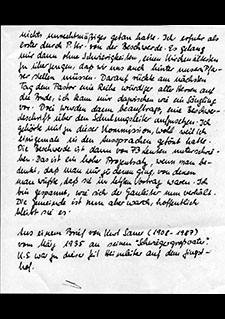 nichts unrechtmäßiges getan hatte. Ich erfuhr als
erster durch P. Kr. von der Beschwerde. Es gelang
mir dann ohne Schwierigkeiten, einen Kirchenältesten
zu überzeugen, daß wir uns auch hinter unsern Pfar-
rer stellen müssen. Darauf rückte am nächsten
Tag dem Pastor eine Reihe würdiger alter Herren auf
die Bude, ich kam mir dazwischen wie ein Säugling
vor. Drei wurden dann beauftragt, eine Beschwer-
deschrift über den Schulungsleiter aufzusetzen. Ich
gehörte mit zu dieser Kommission, wohl weil ich
einigemale in den Aussprachen getönt hatte.
Die Beschwerde ist dann von 73 Leuten unterschrie-
ben. Das ist ein hoher Prozentsatz, wenn man be-
denkt, daß man nur zu denen ging, von denen
man wußte, daß sie im letzten Vortrag waren. Ich
bin gespannt, wie sich der Gauleiter nun verhält.
Die Gemeinde ist nun aber wach, hoffentlich
bleibt sie es.
Aus einem Brief von Kurt Sauer (1908-1987)
vom März 1935 an seinen "Schwiegergroßvater".
K.S. war zu dieser Zeit Heimleiter auf dem
hof.